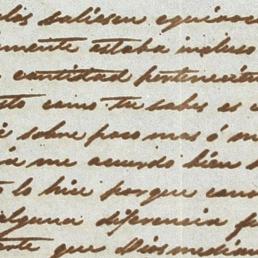 los saliesen equivoc
mente estaba incluso
cantidad pertenecien
to como tu sabes es
sobre poco mas ó m
me acuerdo bien s
lo hice porque cono
alguna diferencia fu
te que Dios media